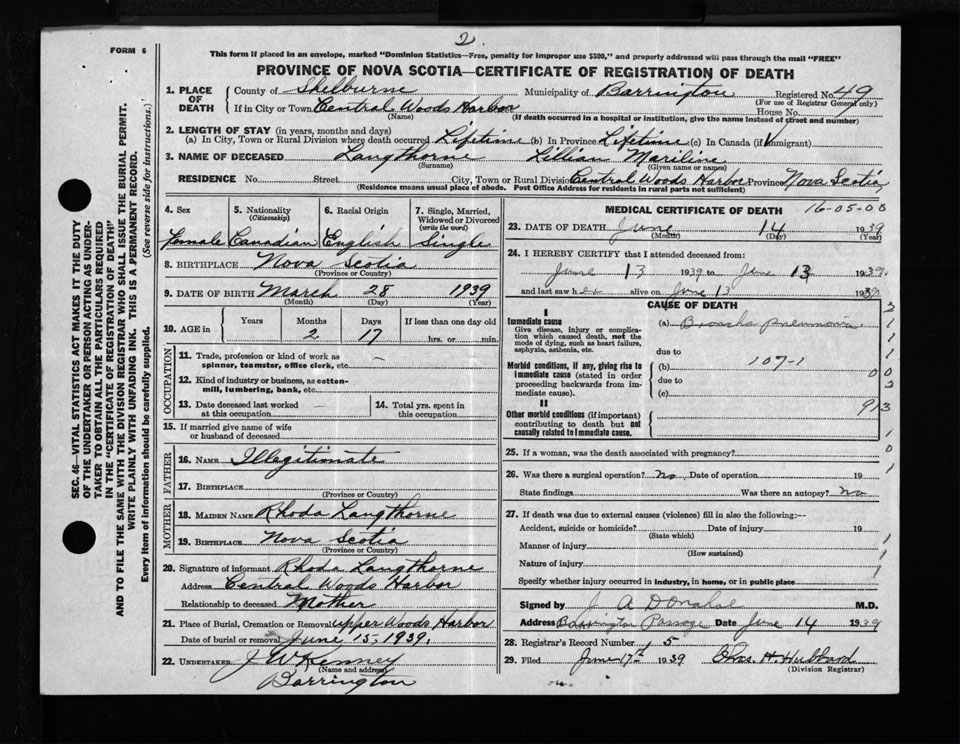 2.
FORM 6
This form if placed in an envelope, marked "Dominion Statistics—Free, penalty for improper use $300," and properly addressed will pass through the mail "FREE"
PROVINCE OF NOVA SCOTIA—CERTIFICATE OF REGISTRATION OF DEATH
1. PLACE OF DEATH
County of Shelburne Municipality of Barrington Registered No. 49
(For use of Registrar General only)
If in City or Town Central Woods Harbor House No.
(Name) (If death occurred in a hospital or institution, give the name instead of street and number)
2. LENGTH OF STAY (in years, months and days)
(a) In City, Town or Rural Division where death occurred Lifetime (b) In Province Lifetime (c) In Canada (if immigrant)
3. NAME OF DECEASED Langthorne Lillian Mariline
(Surname) (Given name or names)
RESIDENCE No. Street City, Town or Rural Division Central Woods Harbor Province Nova Scotia
(Residence means usual place of abode. Post Office Address for residents in rural parts not sufficient)
4. Sex 5. Nationality (Citizenship) 6. Racial Origin 7. Single, Married, Widowed or Divorced (write the word)
Female Canadian English Single
8. BIRTHPLACE Nova Scotia
(Province or Country)
9. DATE OF BIRTH March 28 1939
(Month) (Day) (Year)
10. AGE in Years Months Days If less than one day
2 17 hrs. or min.
OCCUPATION
11. Trade, profession or kind of work as spinner, teamster, office clerk, etc. —
12. Kind of industry or business, as cotton-mill, lumbering, bank, etc.
13. Date deceased last worked at this occupation —
14. Total yrs. spent in this occupation
15. If married give name of wife or husband of deceased
FATHER
16. NAME Illegitimate
17. BIRTHPLACE
(Province or Country)
MOTHER
18. MAIDEN NAME Rhoda Langthorne
19. BIRTHPLACE Nova Scotia
(Province or Country)
20. Signature of informant Rhoda Langthorne
Address Central Woods Harbor
Relationship to deceased Mother
21. Place of Burial, Cremation or Removal Upper Woods Harbor
Date of burial or removal June 15, 1939.
22. UNDERTAKER J W Kenney
(Name and address)
Barrington
MEDICAL CERTIFICATE OF DEATH 16-05-08
23. DATE OF DEATH June 14 1939
(Month) (Day) (Year)
24. I HEREBY CERTIFY that I attended deceased from:
June 13 1939 to June 13 1939.
and last saw h er alive on June 13 1939
CAUSE OF DEATH
I
Immediate cause
Give disease, injury or complication which caused death, not the mode of dying, such as heart failure, asphyxia, asthenia, etc.
(a) Broncho pneumonia
due to
Morbid conditions, if any, giving rise to immediate cause (stated in order proceeding backwards from immediate cause).
(b) 107-1
due to
(c)
II
Other morbid conditions (important) contributing to death but not causally related to immediate cause.
913
25. If a woman, was the death associated with pregnancy?
26. Was there a surgical operation? no Date of operation 19
State findings Was there an autopsy? no
27. If death was due to external causes (violence) fill in also the following:—
Accident, suicide or homicide? Date of injury 19
(State which)
Manner of injury
(How sustained)
Nature of injury
Specify whether injury occurred in industry, in home, or in public place
Signed by J A Donahoe M.D.
Address Barrington Passage Date June 14 1939
28. Registrar's Record Number 5
29. Filed June 17th 1939 Chas. H. Hubbard
(Division Registrar)
SEC. 46—VITAL STATISTICS ACT MAKES IT THE DUTY
OF THE UNDERTAKER OR PERSON ACTING AS UNDER-
TAKER TO OBTAIN ALL THE PARTICULARS REQUIRED
IN THE "CERTIFICATE OF REGISTRATION OF DEATH"
AND TO FILE THE SAME WITH THE DIVISION REGISTRAR WHO SHALL ISSUE THE BURIAL PERMIT.
WRITE PLAINLY WITH UNFADING INK. THIS IS A PERMANENT RECORD.
Every item of information should be carefully supplied. (See reverse side for instructions.)